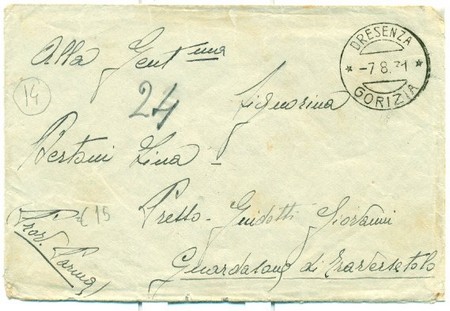 Alla Gent.ma
DRESENZA
-7.8.31
GORIZIA
14
24
Signorina
Bertani Lina -
£ 15
Presso - Guidotti Giovanni
(Prov. Parma)
Guardasone di Traversetolo